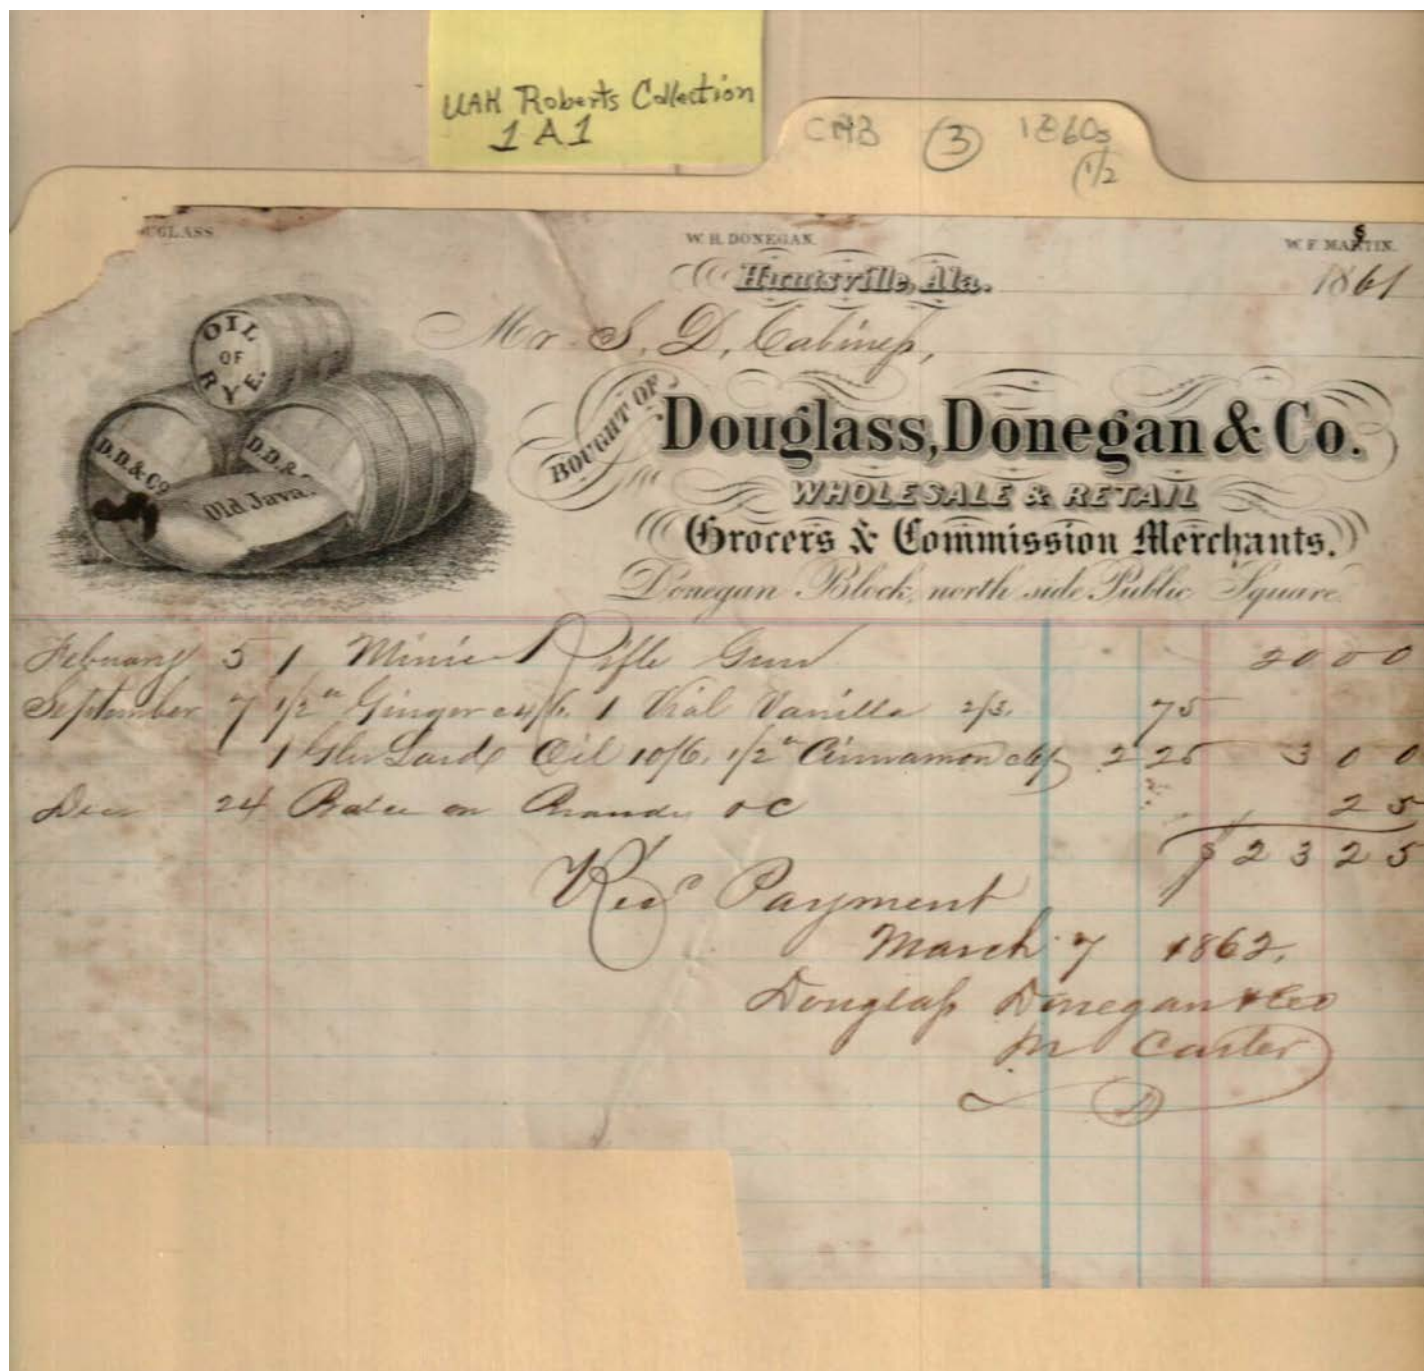 UAH Roberts Collection
1 A1
CMB 3 1860s
1/2
UGLASS W. H. DONEGAN. W. F. MASTIN.
Huntsville, Ala. 1861
Mr. S. D. Cabiness,
OIL
OF
RYE.
D.D.& Co
D.D.&
Old Java.
BOUGHT OF
Douglass, Donegan & Co.
WHOLESALE & RETAIL
Grocers & Commission Merchants.
Donegan Block, north side Public Square.
February 5 1 Minie Rifle Gun 20 00
September 7 1/2 " Ginger 4/6. 1 Vial Vanilla 2/3. 75
1 Lard Oil 10/6. 1/2 " Cinnamon 2 25 3 00
Dec 24 on 25
$ 23 25
Recd Payment
March 7 1862.
Douglass Donegan & Co
M Carter